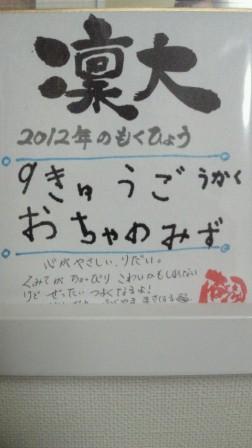 凛大
2012年のもくひょう
9きゅうごうかく
おちゃめみず
心がやさしい、りだい。
くみてがちょっぴりこわいかもしれない
けどぜったいつよくなるよ!